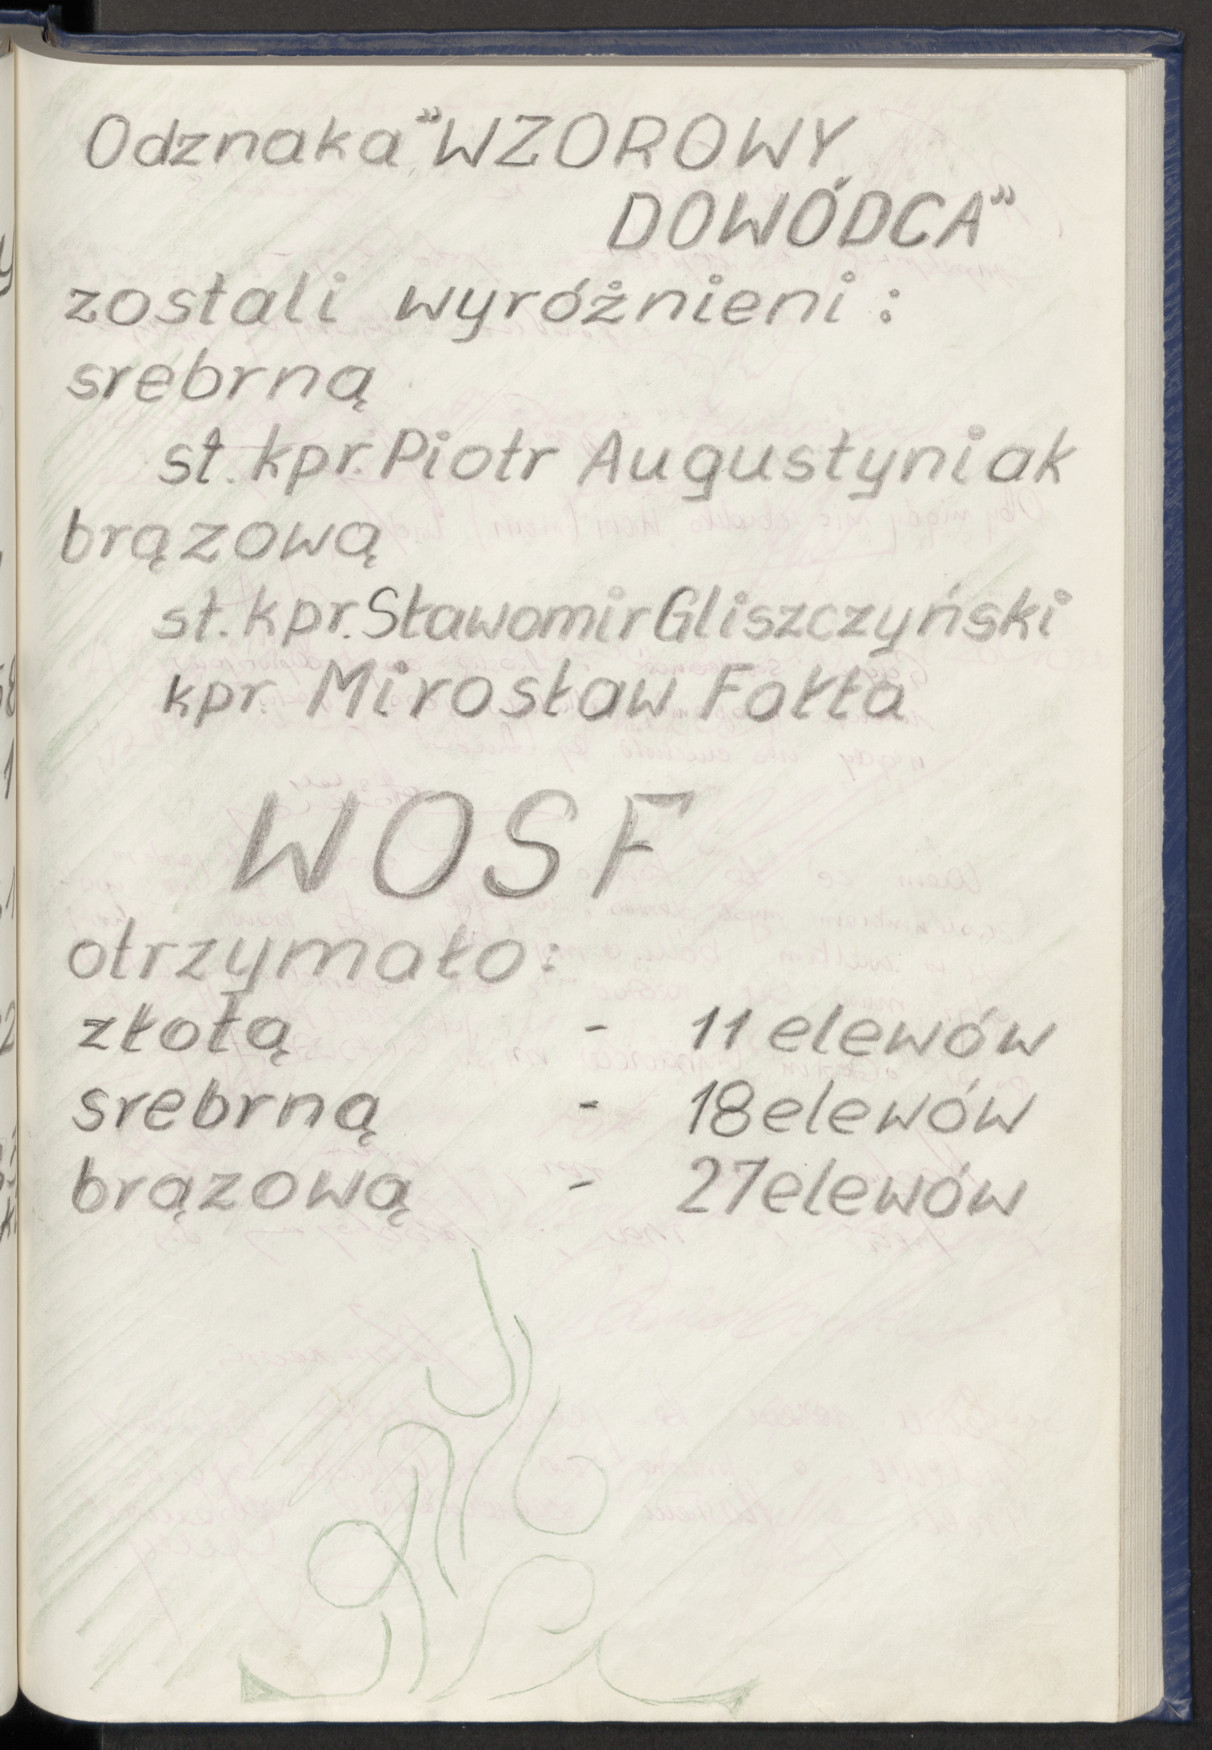 Odznaka "WZOROWY
DOWÓDCA"
zostali wyróżnieni :
srebrną
st. kpr. Piotr Augustyniak
brązową
st. kpr. Sławomir Gliszczyński
kpr. Mirosław Fołta
WOSF
otrzymało:
złotą - 11 elewów
srebrną - 18 elewów
brązową - 27 elewów